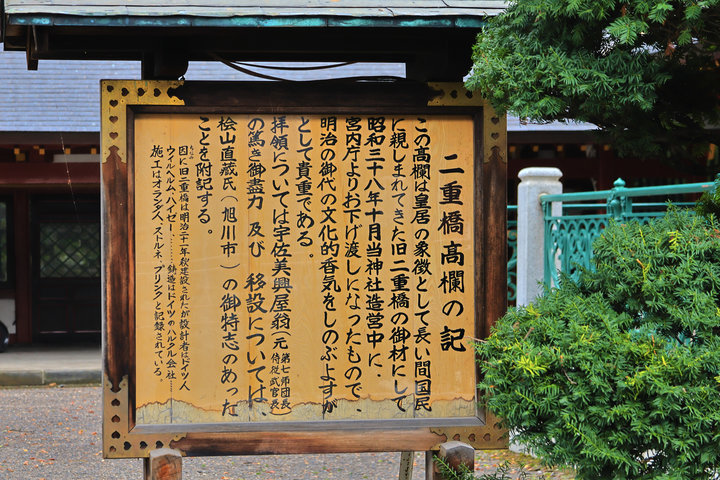 二重橋高欄の記
この高欄は皇居の象徴として長い間国民
に親しまれてきた旧二重橋の御材にして
昭和三十八年十月当神社造営中に、
宮内庁よりお下げ渡しになったもので、
明治の御代の文化的香気をしのぶよすが
として貴重である。
拝領については宇佐美興屋翁(元第七師団長侍従武官長)
の篤き御盡力及び移設については、
桧山直蔵氏(旭川市)の御特志のあった
ことを附記する。
因に旧二重橋は明治二十一年秋建設されたが設計者はドイツ人
ウィルヘルム、ハイゼー、………鋳造はドイツのハルクル会社………
施工はオランダ人、ストルネ、ブリンクと記録されている。